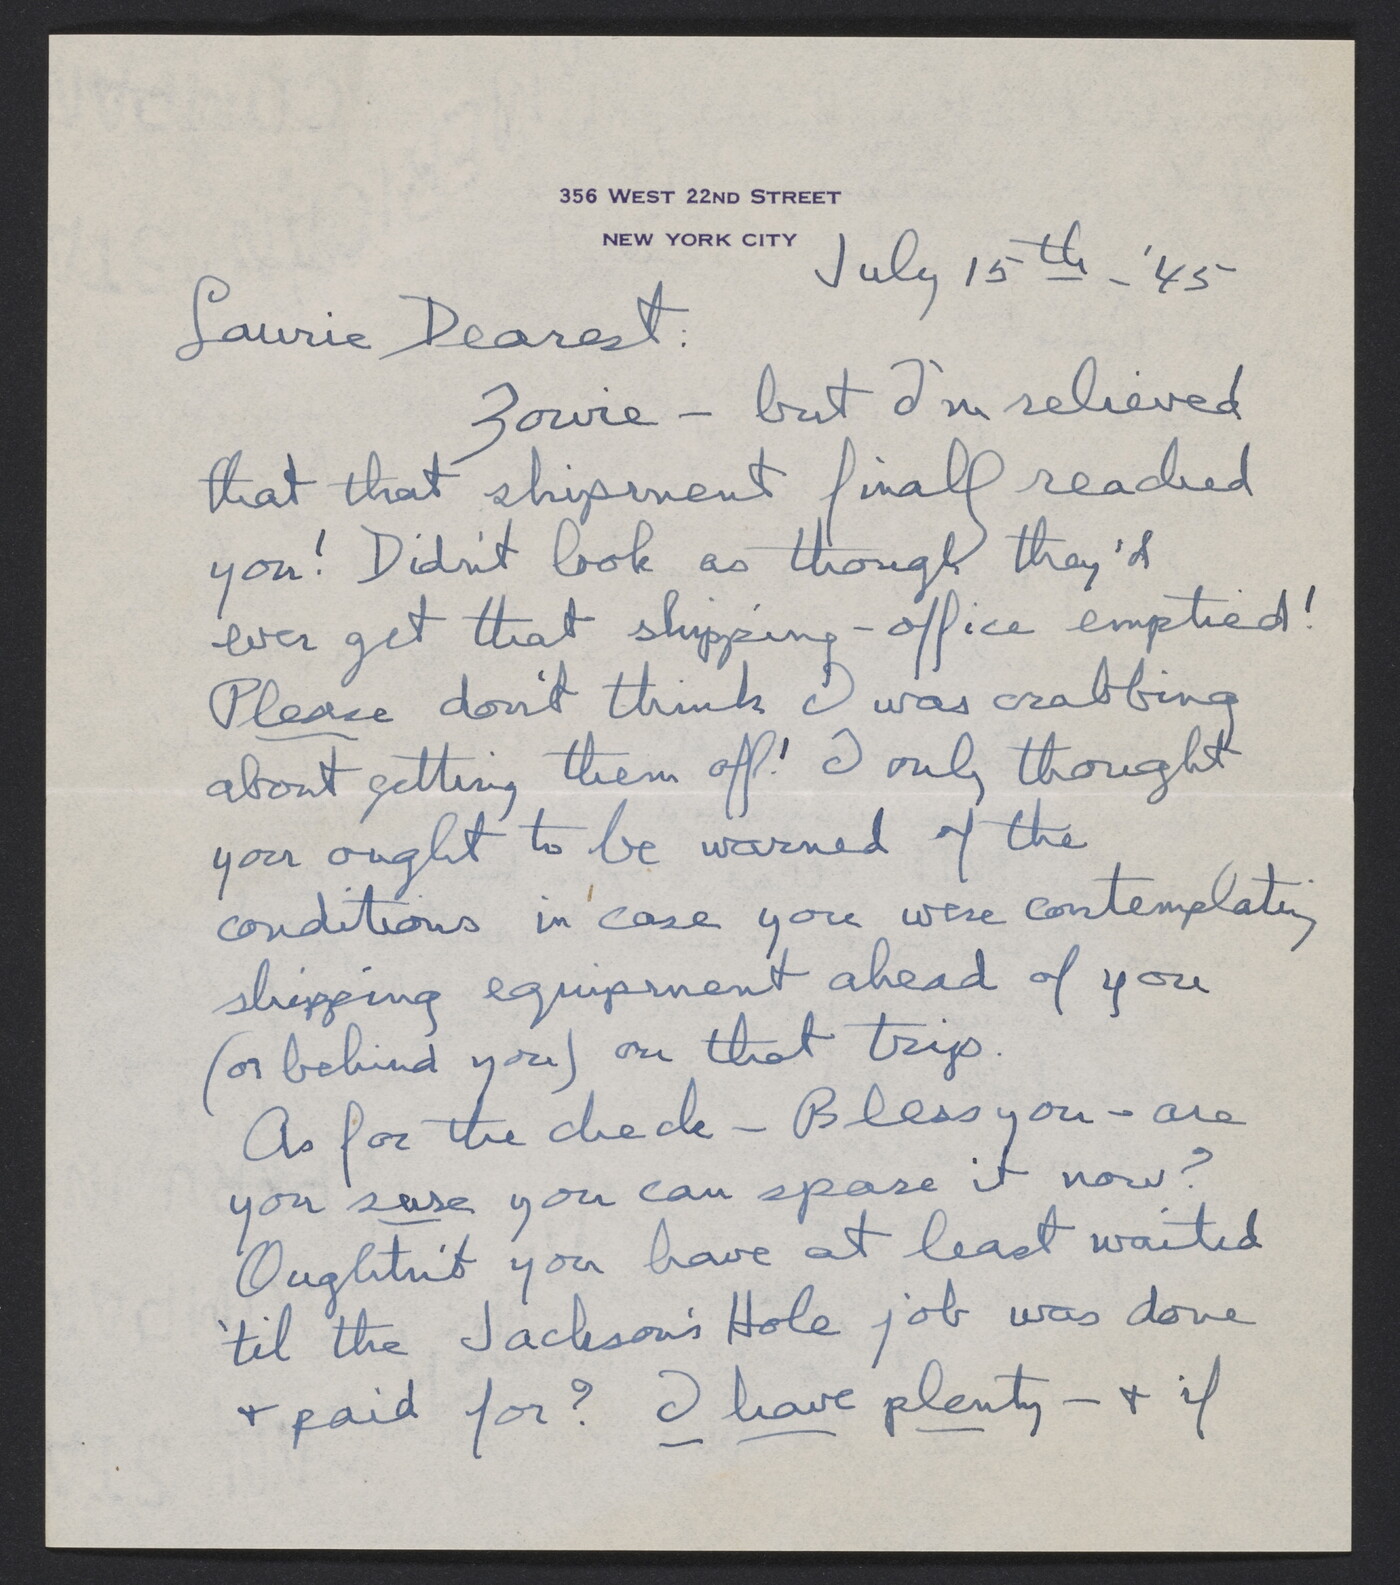 356 WEST 22ND STREET
NEW YORK CITY
July 15th - '45
Laurie Dearest:
Zowie - but I'm relieved
that that shipment finally reached
you! Didn't look as though they'd
ever get that shipping-office emptied!
Please don't think I was crabbing
about getting them off! I only thought
you ought to be warned of the
conditions in case you were contemplating
shipping equipment ahead of you
(or behind you) on that trip.
As for the check - Bless you - are
you sure you can spare it now?
Oughtn't you have at least waited
'til the Jackson's Hole job was done
& paid for? I have plenty - & if